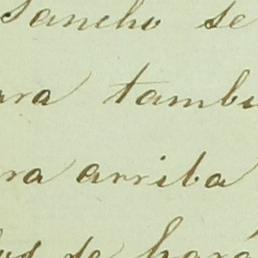 Sancho se
ara tambi
ra arriba
se hará